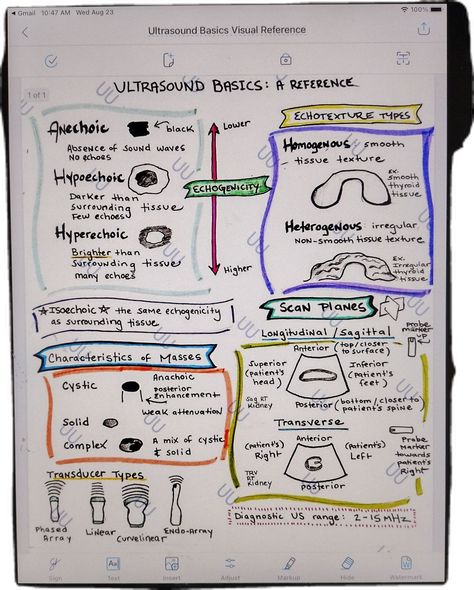 Gmail 10:47 AM Wed Aug 23
100%
Ultrasound Basics Visual Reference
1 of 1
ULTRASOUND BASICS: A REFERENCE
Anechoic
black
Absence of Sound waves
No echoes
Hypoechoic
Darker than
surrounding tissue
Few echoes
Hyperechoic
Brighter than
surrounding tissue
many echoes
Lower
ECHOGENICITY
Higher
ECHOTEXTURE TYPES
Homogenous: smooth
tissue texture
Ex:
Smooth
thyroid
tissue
Heterogenous: irregular
NON-smooth tissue texture
Ex.
Irregular
thyroid
tissue
Isoechoic the same echogenicity
as surrounding tissue
SCAN PLANES
Longitudinal/Sagittal
Probe
marker
UP
Anterior (top/closer
to surface)
Superior
(patient's
head)
Inferior
(patient's
feet)
Sag RT
Kidney
Posterior (bottom/closer to
patient's spine
Transverse
(patient's)
Right
Anterior
(patient's)
Left
Probe
Marker
towards
patient's
Right
TRV
RT
Kidney
Posterior
Characteristics of Masses
Cystic
Anachoic
posterior
Enhancement
Weak attenuation
Solid
Complex
A mix of cystic
& solid
Transducer Types
Phased
Array
Linear
Curvelinear
Endo-Array
Diagnostic US range: 2-15 MHz
UU
Sign
Text
Insert
Adjust
Markup
Hide
Watermark